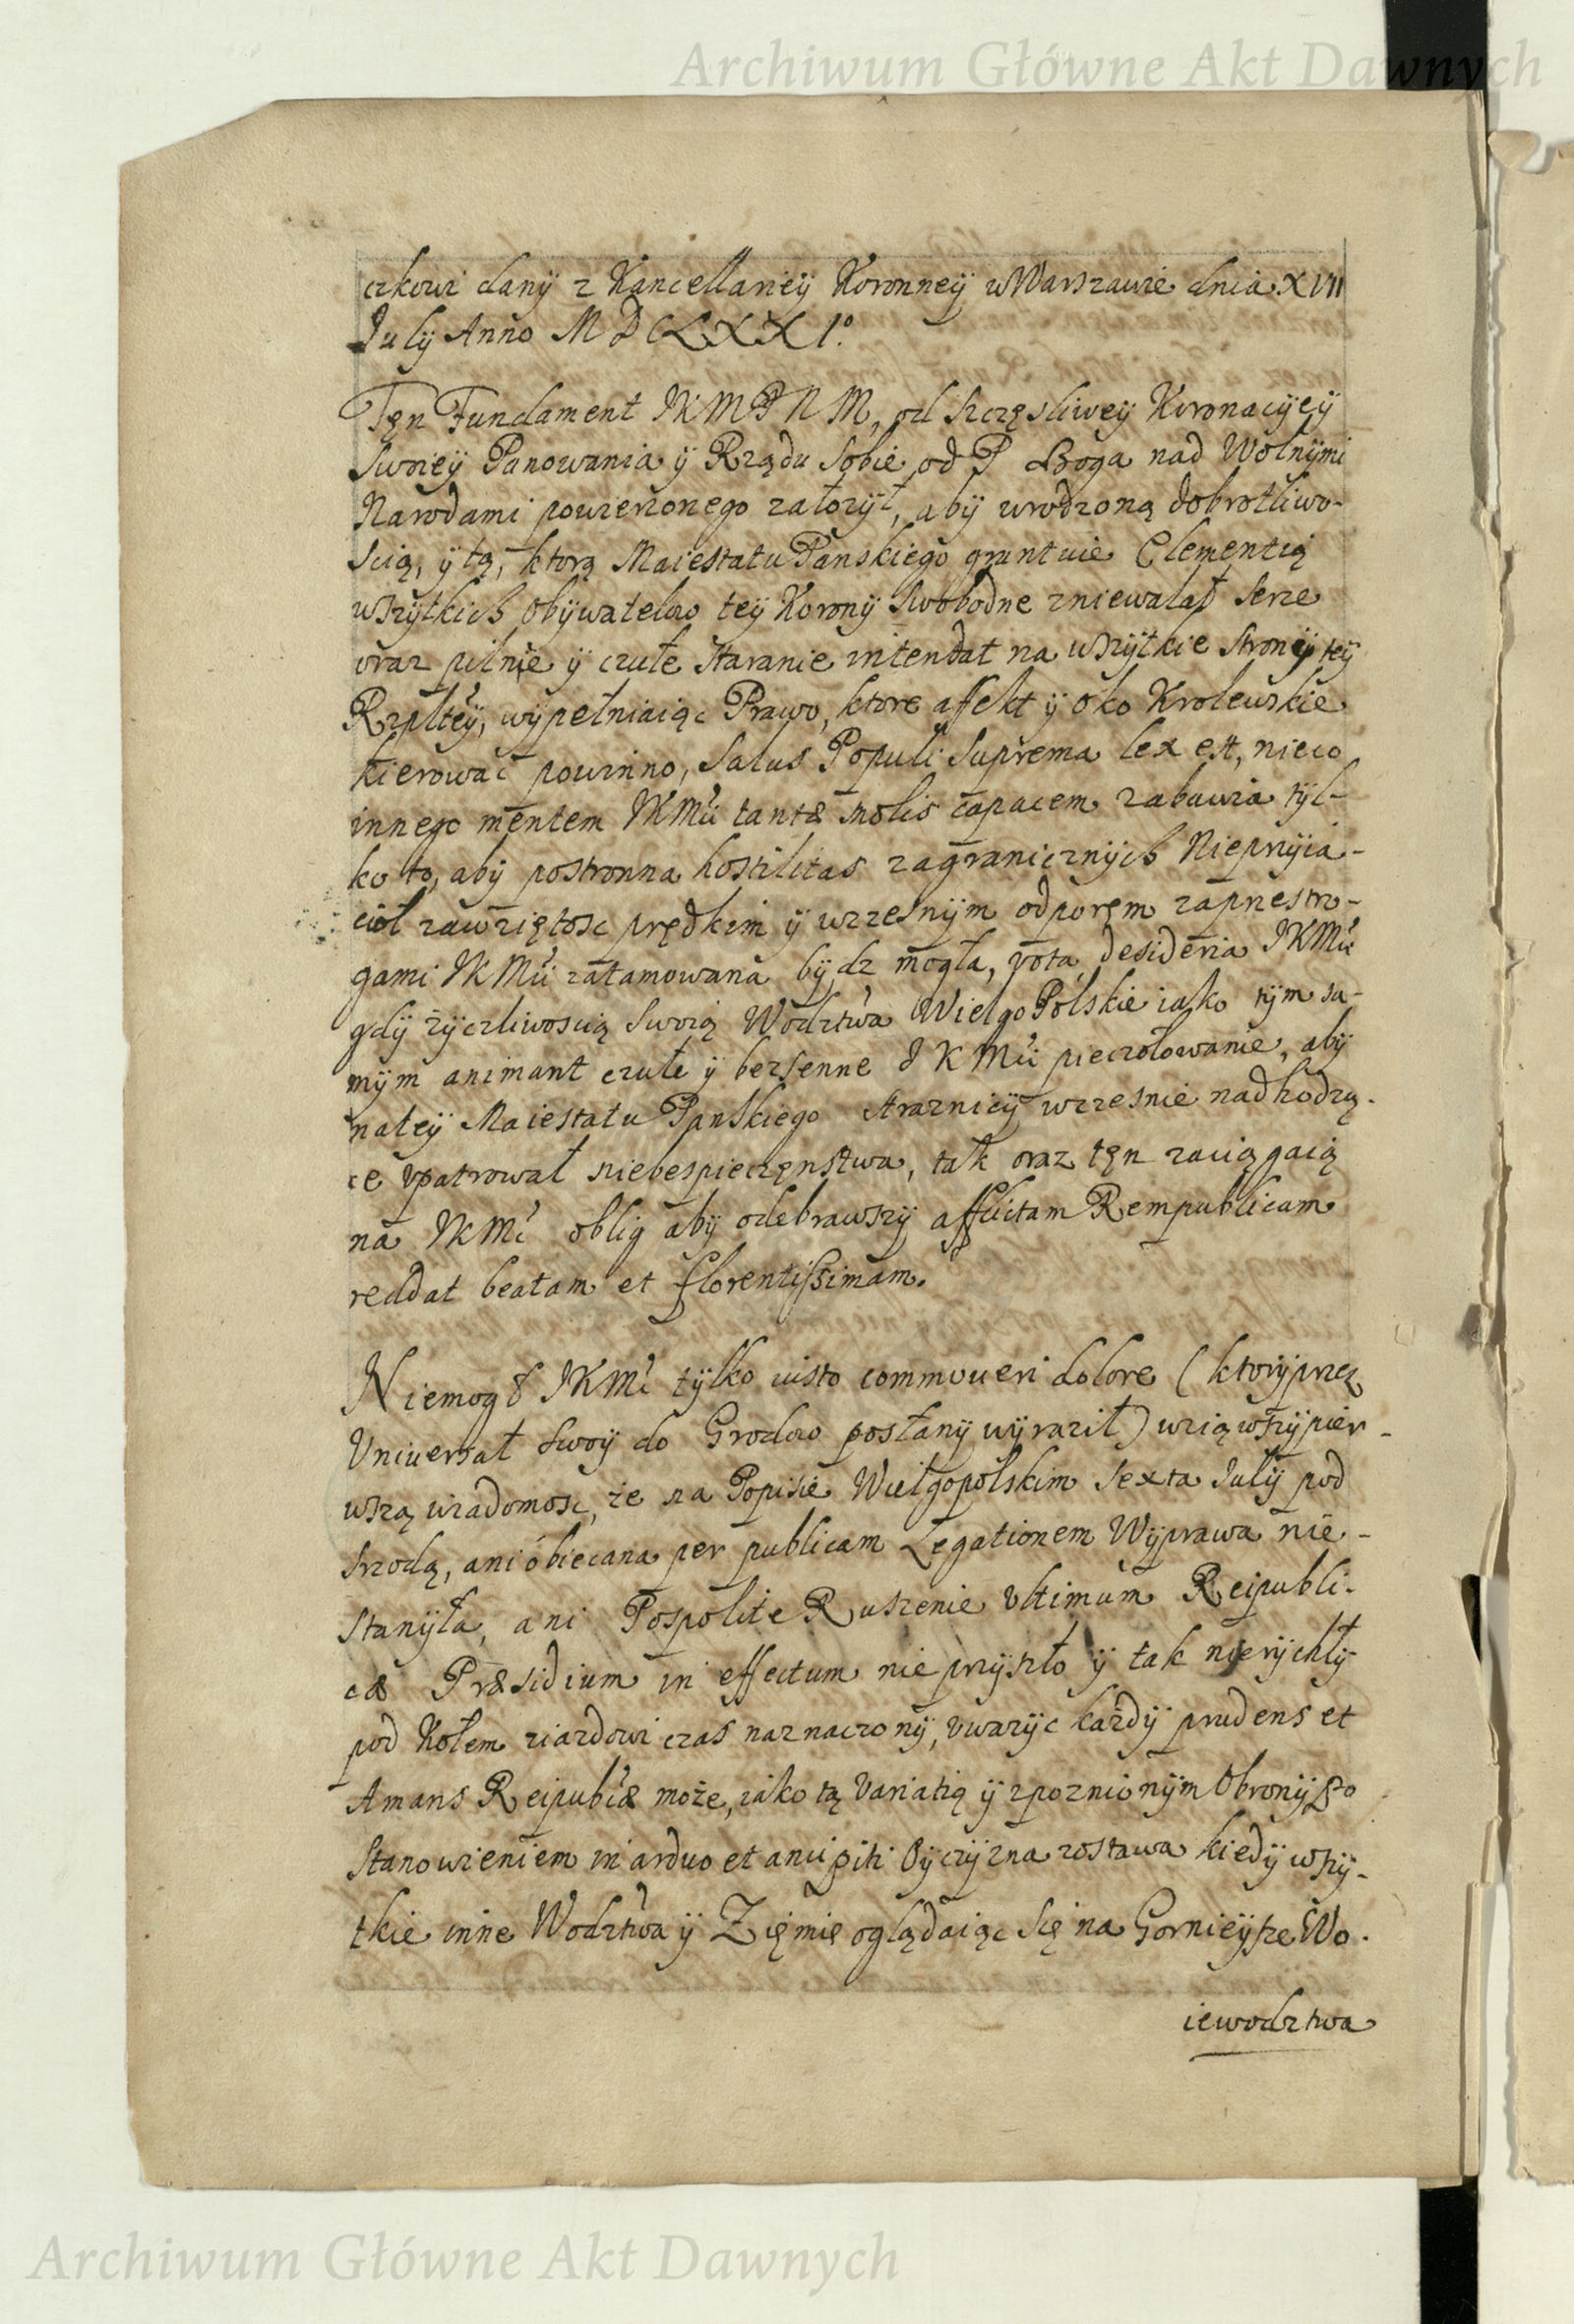 Archiwum Główne Akt Dawnych
czkowi dany z Kancellariey Koronney w Warszawie dnia XVII
July Anno MDCLXXI°.
Tęn Fundament JKMPNM, od szczęsliwey Koronacyey
Swoiey Panowania y Rządu Sobie od P Boga nad Wolnymi
Narodami powierzonego załozył, aby wrodzoną dobrotliwo-
scią, y tą, ktorą Maiestatu Panskiego gruntuie Clementią
wszytkich Obywatelow tey Korony Swobodne zniewalał Serce
oraz pilnie y czułe staranie intendat na wszytkie strony tey
Rzpltey, wypełniaiąc Prawo, ktore affekt y oko Krolewskie
kierować powinno, Salus Populi Suprema lex est, nieco
innego mentem JKMci tantæ molis capacem zabawia tyl-
ko to, aby postronna hostilitas zagranicznych Nieprzyia-
cioł zawziętosc prędkim y wczesnym odporęm zaprzestro-
gami JKMci zatamowana bydz mogła, vota desideria JKMci
gdy życzliwoscią Swoią Wodztwa WielgoPolskie iako tym sa-
mym animant czułe y bezsenne JKMci pieczołowanie, aby
natey Maiestatu Panskiego straznicy wczesnie nadhodzą-
ce vpatrował niebespieczęnstwa, tak oraz tęn zaciągaią
na JKMć oblig aby odebrawszy afflictam Rempublicam
reddat beatam et florentissimam.
Niemogł JKMć tylko iusto commoueri dolore (ktory przez
Vniuersał Swoy do Grodow posłany wyraził) wziąwszy pier-
wszą wiadomosc, że na Popisie Wielgopolskim Sexta July pod
Srzodą, ani obiecana per publicam Legationem Wyprawa nie-
stanyła, ani Pospolite Ruszenie Vltimum Reipubli-
cæ Præsidium in effectum nie przyszło y tak nierychły
pod Kołem ziazdowi czas naznaczony, vwazyc każdy prudens et
Amans Reipublæ może, iako tą Variatią y zpoznionym Obrony Po
stanowieniem in arduo et ancipiti Oyczyzna zostawa kiedy wszy-
tkie inne Wodztwa y Zięmie oglądaiąc Się na Gornieysze Wo-
iewodztwa
Archiwum Główne Akt Dawnych